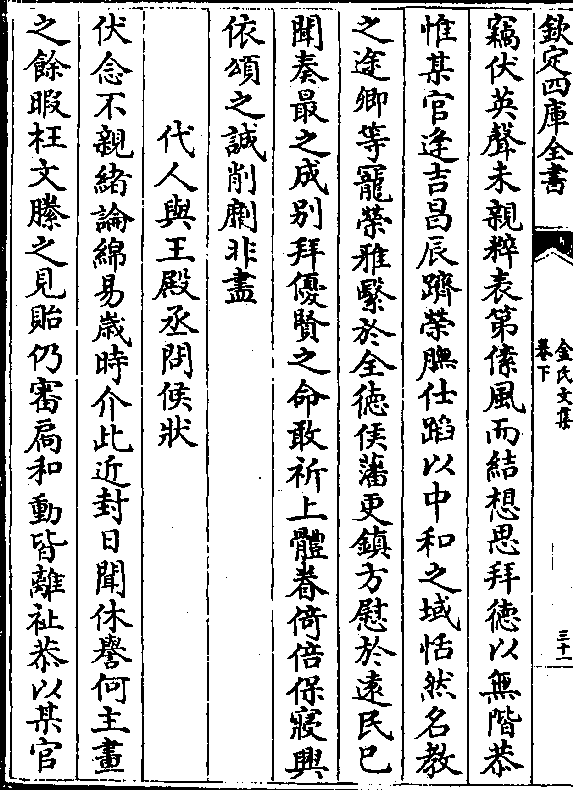 欽定四庫全書
金氏文集
卷下
三十一
竊伏英聲未親粹表第傃風而結想思拜德以無階恭
惟某官逢吉昌辰躋榮膴仕蹈以中和之域恬然名教
之途卿等寵榮雅繄於全德侯藩更鎮方慰於遠民已
聞奏最之成別拜優賢之命敢祈上體眷倚倍保寢興
依頌之誠削牘非盡
代人與王殿丞問候狀
伏念不親緒論綿易歲時介此近封日聞休譽何主畫
之餘暇枉文縢之見貽仍審扃和動皆離祉恭以某官